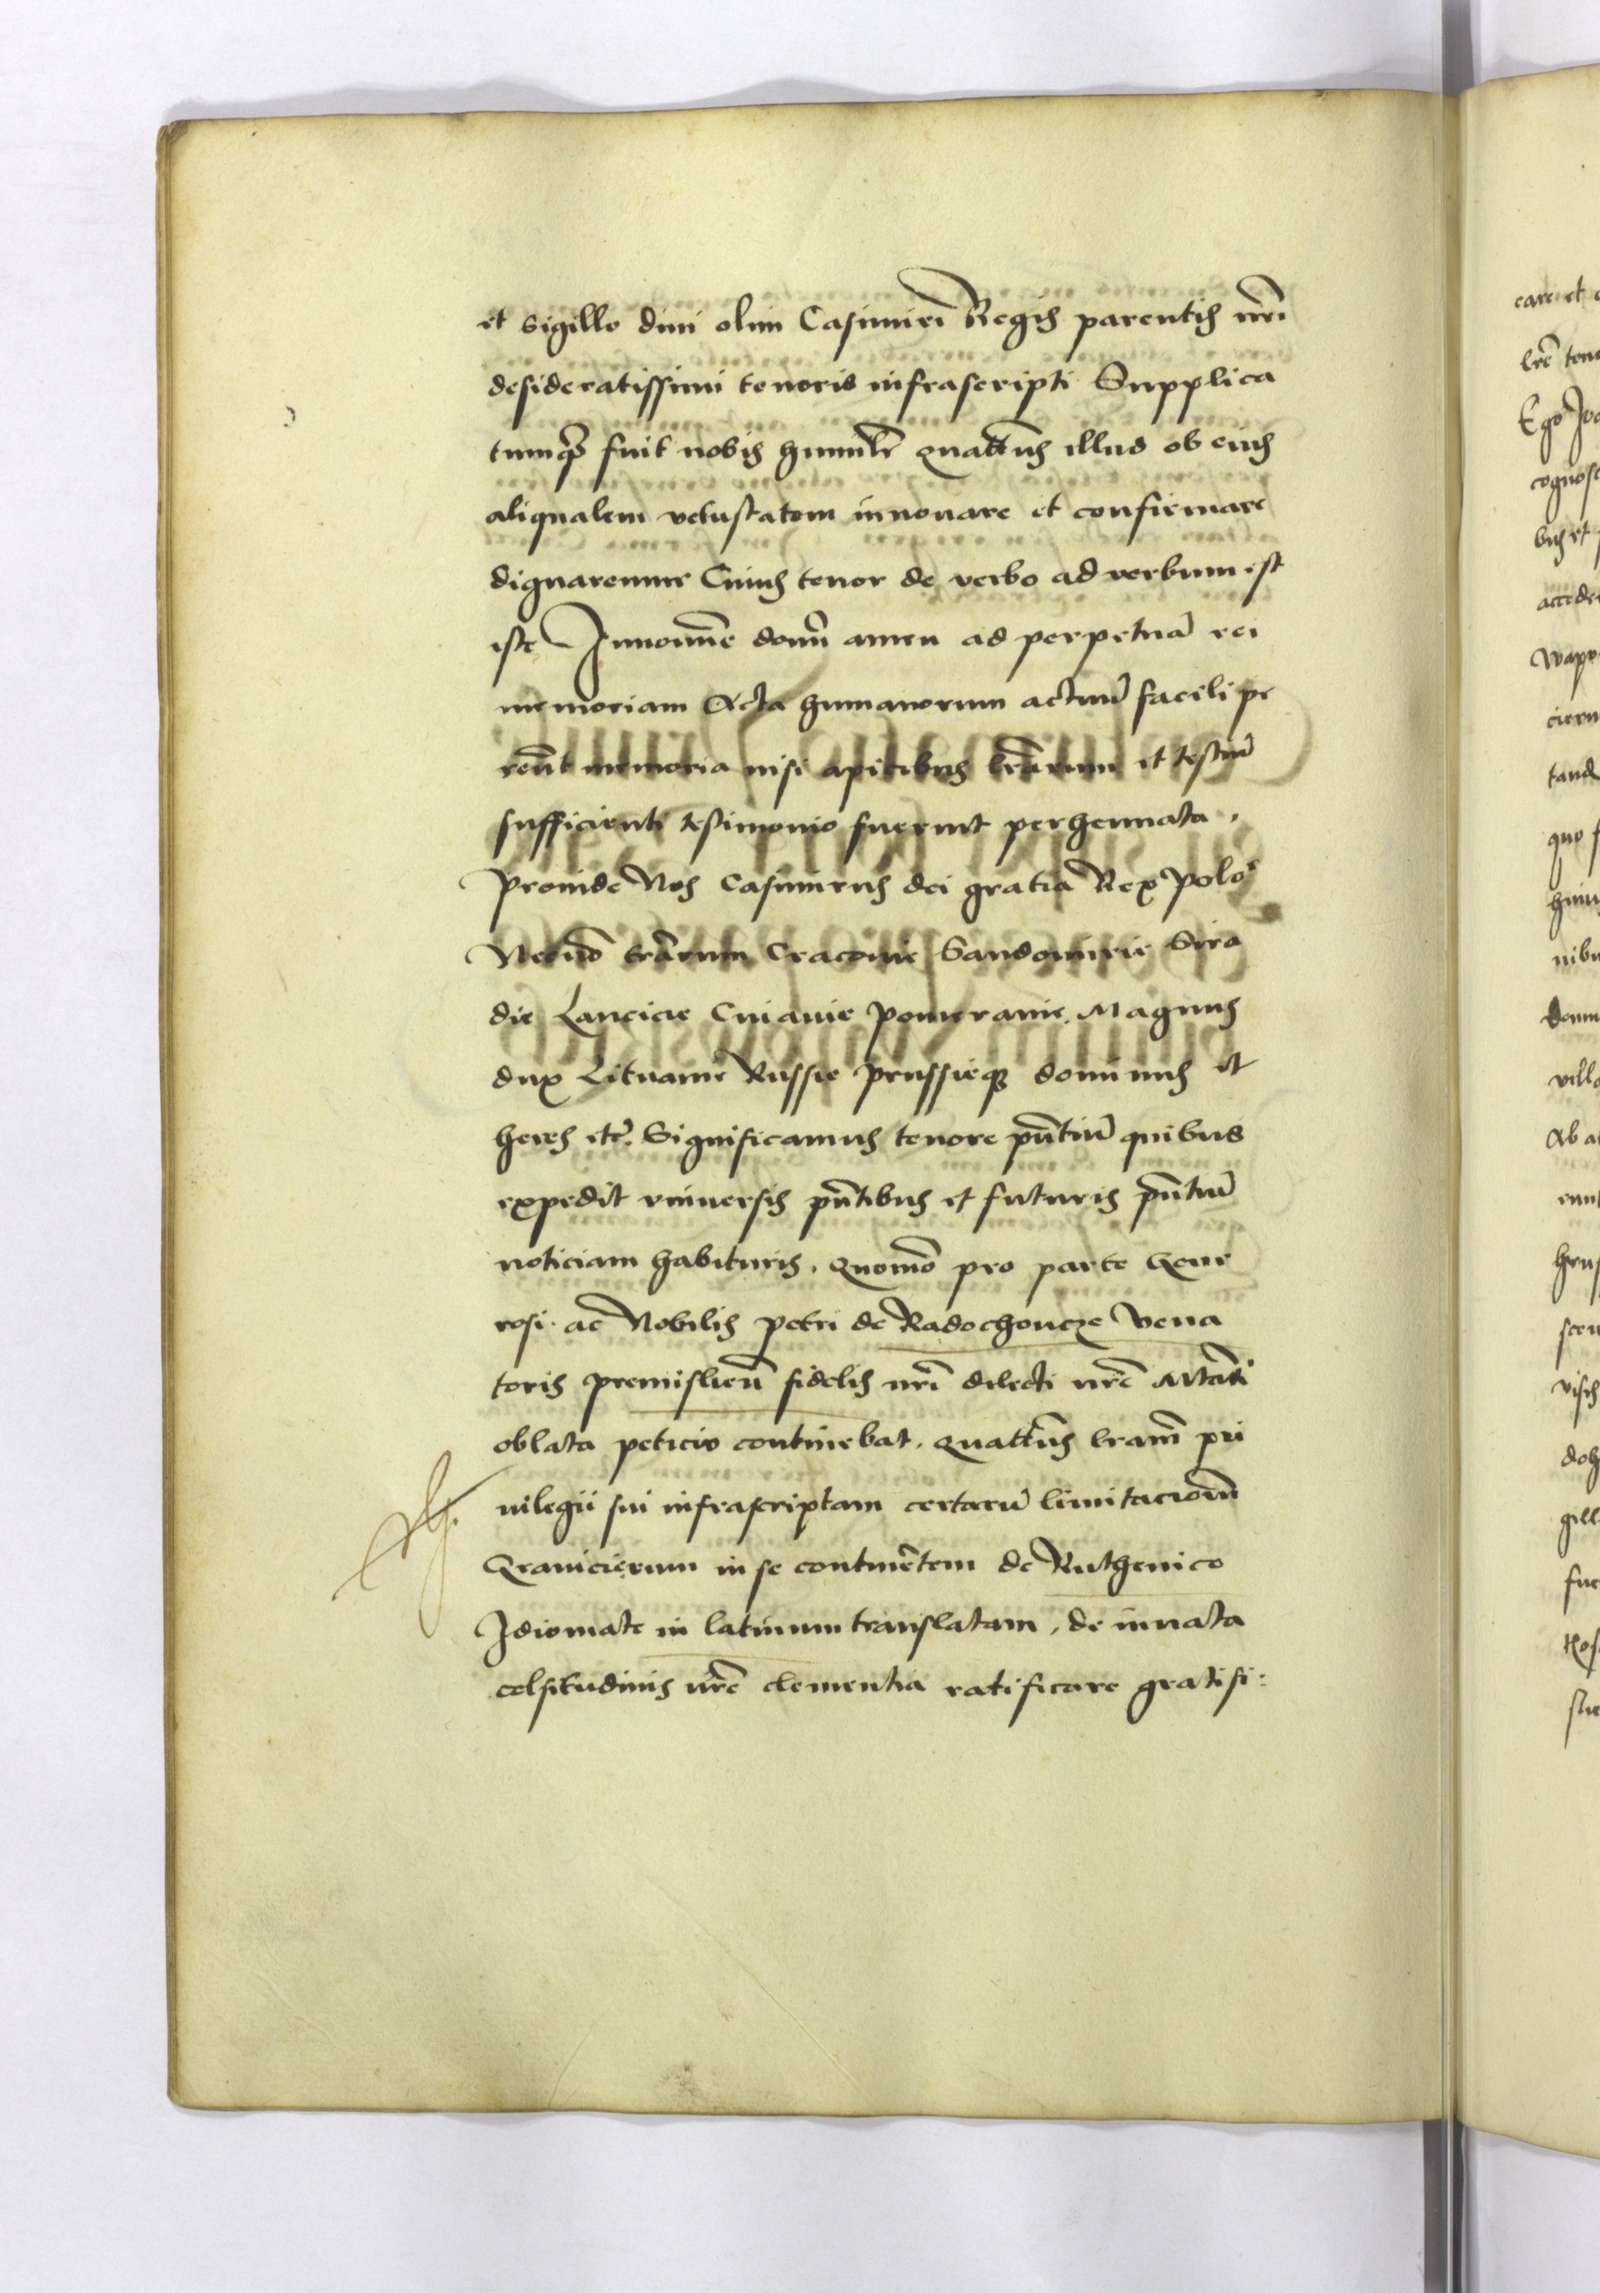 et sigillo diui olim Casimiri Regis parentis nrī
desideratissimi tenoris infrascripti Supplica
tumqȝ fuit nobis humilr̄ quatts̄ illud ob eius
aliqualem vetustatem innouare et confirmare
dignaremur Cuius tenor de verbo ad verbum est
iste Innomīe domī amen ad perpetuā rei
memoriam Acta humanorum actuū facili pe
reūt memoria nisi apicibus lr̄arum et testiū
sufficienti testimonio fuerint perhennata.
proinde Nos Casimirus dei gratia Rex polo
Necnō tr̄arum Cracouie Sandomirie Sira
die Lancicie Cuiauie pomeranie Magnus
dux Lituanie Russie prussieqȝ dominus et
heres etc̄. Significamus tenore pn̄tiū quibus
expedit vniuersis pn̄tibus et futuris pn̄tiū
noticiam habituris. quomō pro parte Gene
rosi ac Nobilis petri de Radochoncze vena
toris premislien̄ fidelis nrī dilecti nrē Mtāti
oblata peticio continebat. quatts̄ lr̄am pri
uilegii sui infrascriptam certarū limitacionū
Granicierum in se continētem de Ruthenico
Idiomate in latinum translatam, de innata
celsitudinis nrē clementia ratificare gratifi:
care et
lrē ten
Ego Jo
cognosc
bus et
accede
ciern
tand
quo f
huiu
nibu
domi
villa
Ab a